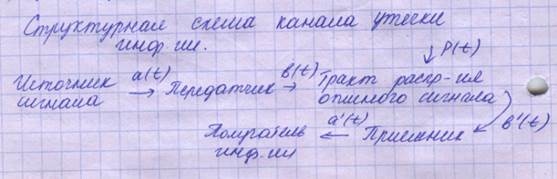 Структурная схема канала утечки
инф-ии.
Источник сигнала a(t) → Передатчик b(t) → Тракт распр-ия опасного сигнала ↓ P(t)
b'(t)
Получатель инф.ии a'(t) ← Приемник